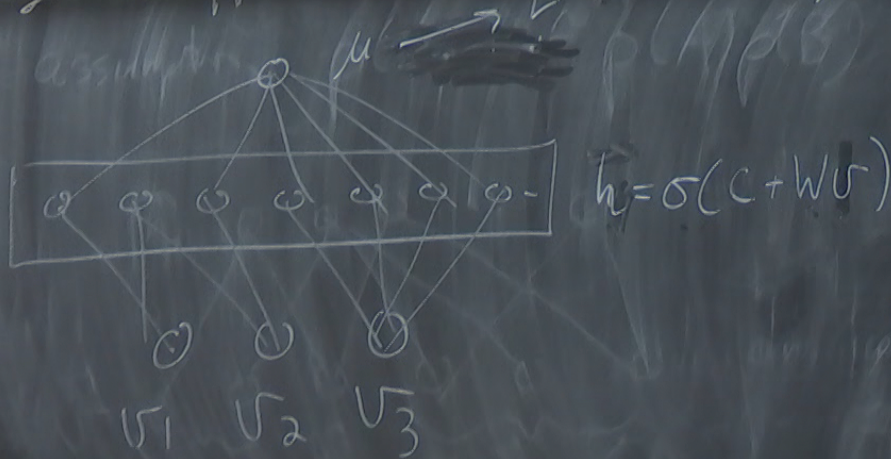 μ
h = σ(c + Wv)
v1 v2 v3